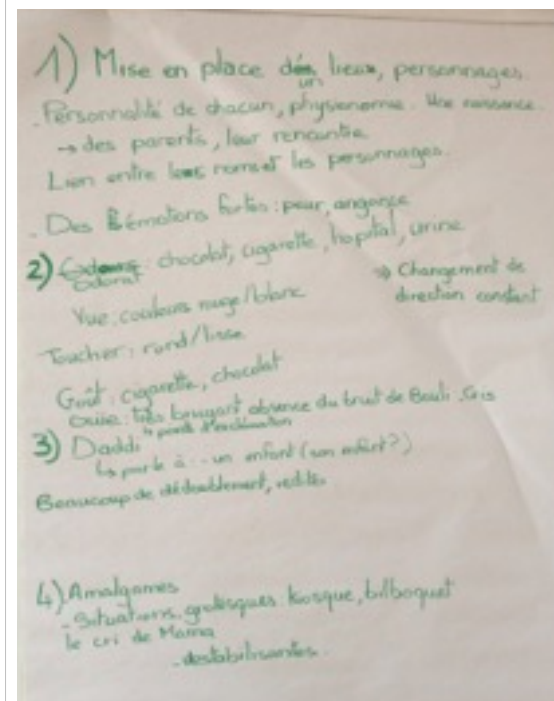 1) Mise en place d'un lieu, personnages.
- Personnalité de chacun, physionomie. Une naissance.
→ des parents, leur rencontre
Lien entre leurs noms et les personnages.
- Des Émotions fortes : peur, angoisse
2) Odorat : chocolat, cigarette, hopital, urine
⇒ Changement de
direction constant
Vue : couleurs rouge/blanc
Toucher : rond/lisse
Goût : cigarette, chocolat
Ouïe : très bruyant absence du bruit de Bouli. Cris
↳ points d'exclamation
3) Daddi
↳ parle à... un enfant (son enfant ?)
Beaucoup de dédoublement, redites
4) Amalgames
- Situations grotesques : kiosque, bilboquet
le cri de Mama
- destabilisantes.